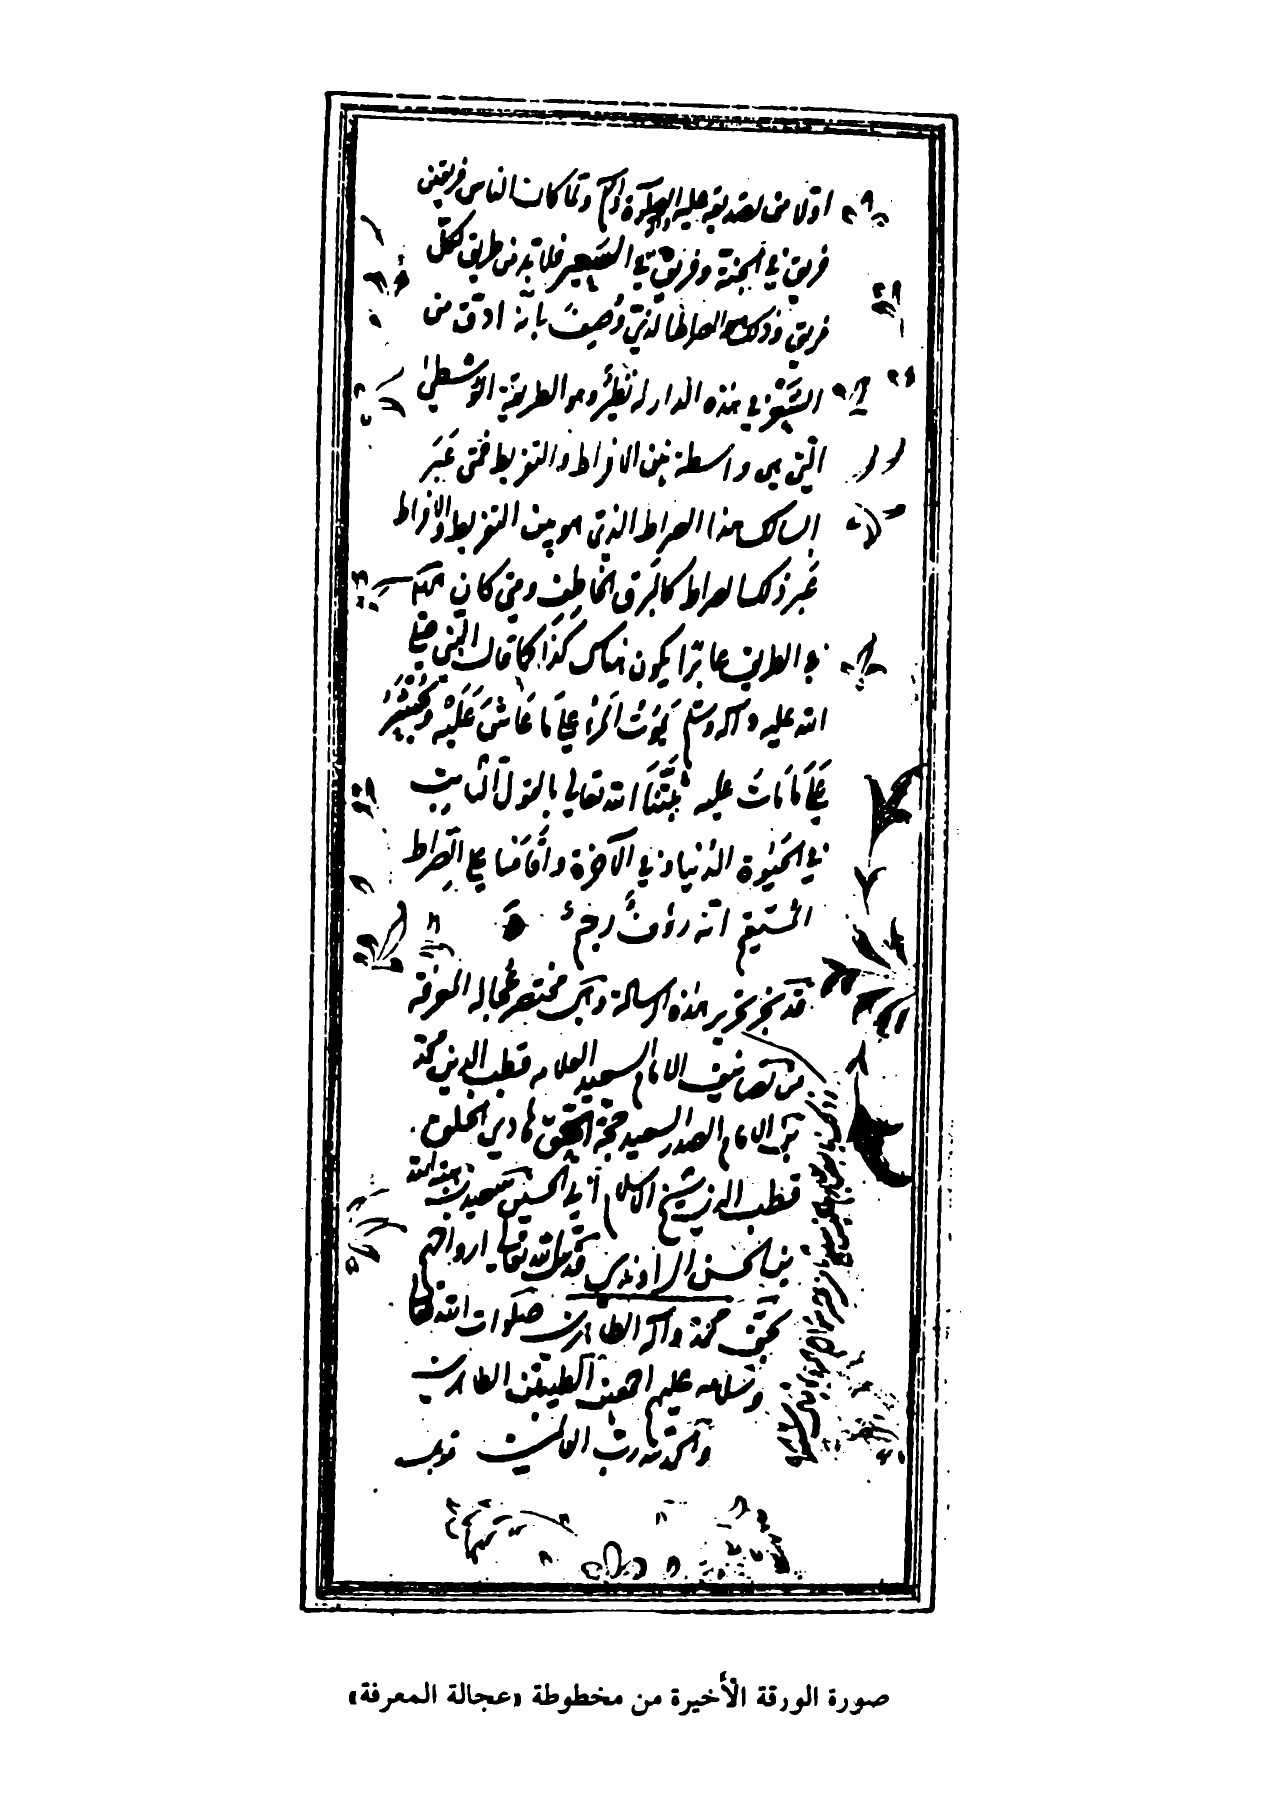 اولا من تصديقه عليه الصلوة والسلم ولما كان الناس فريقين
فريق في الجنة وفريق في السعير فلا بد من طريق لكل
فريق وذلك هو الصراط الذي وصف بانه ادق من
الشعر في هذه الدار له نظير وهو الطريقة الوسطى
التي هي واسطة بين الافراط والتفريط فمتى عَبَرَ
السالك هذا الصراط الذي هو بين التفريط والافراط
عَبَرَ ذلك الصراط كالبرق الخاطف ومتى كان ههنا
في الطريق عاثرا يكون هناك كذا كما قال النبي صلى
الله عليه وآله وسلم يَمُوتُ المَرْءُ عَلى مَا عَاشَ عَلَيْه وَيُحْشَرُ
عَلى مَا مَاتَ عليه ثبّتنا الله تعالى بالقول الثابت
في الحيوة الدنيا وفي الآخرة وأقامنا على الصراط
المستقيم انه رؤفٌ رحيم
قد نجز تحرير هذه الرسالة وهي مختصر عجالة المعرفة
من تصانيف الامام السعيد العلامه قطب الدين محمد
بن الامام الصدر السعيد حجة الحق هادي الخلق
قطب الدين شيخ الاسلام أبي الحسين سعيد بن هبة الله
بن الحسن الراوندي قدس الله تعالى ارواحهم
بحق محمد وآله الطاهرين صلوات الله تعالى
وسلامه عليهم اجمعين الطيبين الطاهرين
والحمد لله رب العالمين
صورة الورقة الأخيرة من مخطوطة «عجالة المعرفة»